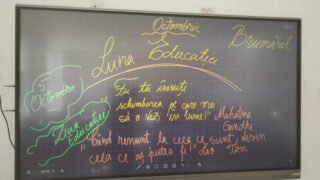 Octombrie
Luna Educației
Brumărel
Octombrie
Ziua Educației
Fii tu însuți
schimbarea pe care vrei
să o vezi "în lume!" Mahatma
Gandhi
"Când renunț la ceea ce sunt, devin
ceea ce aș putea fi!" Lao Tzu